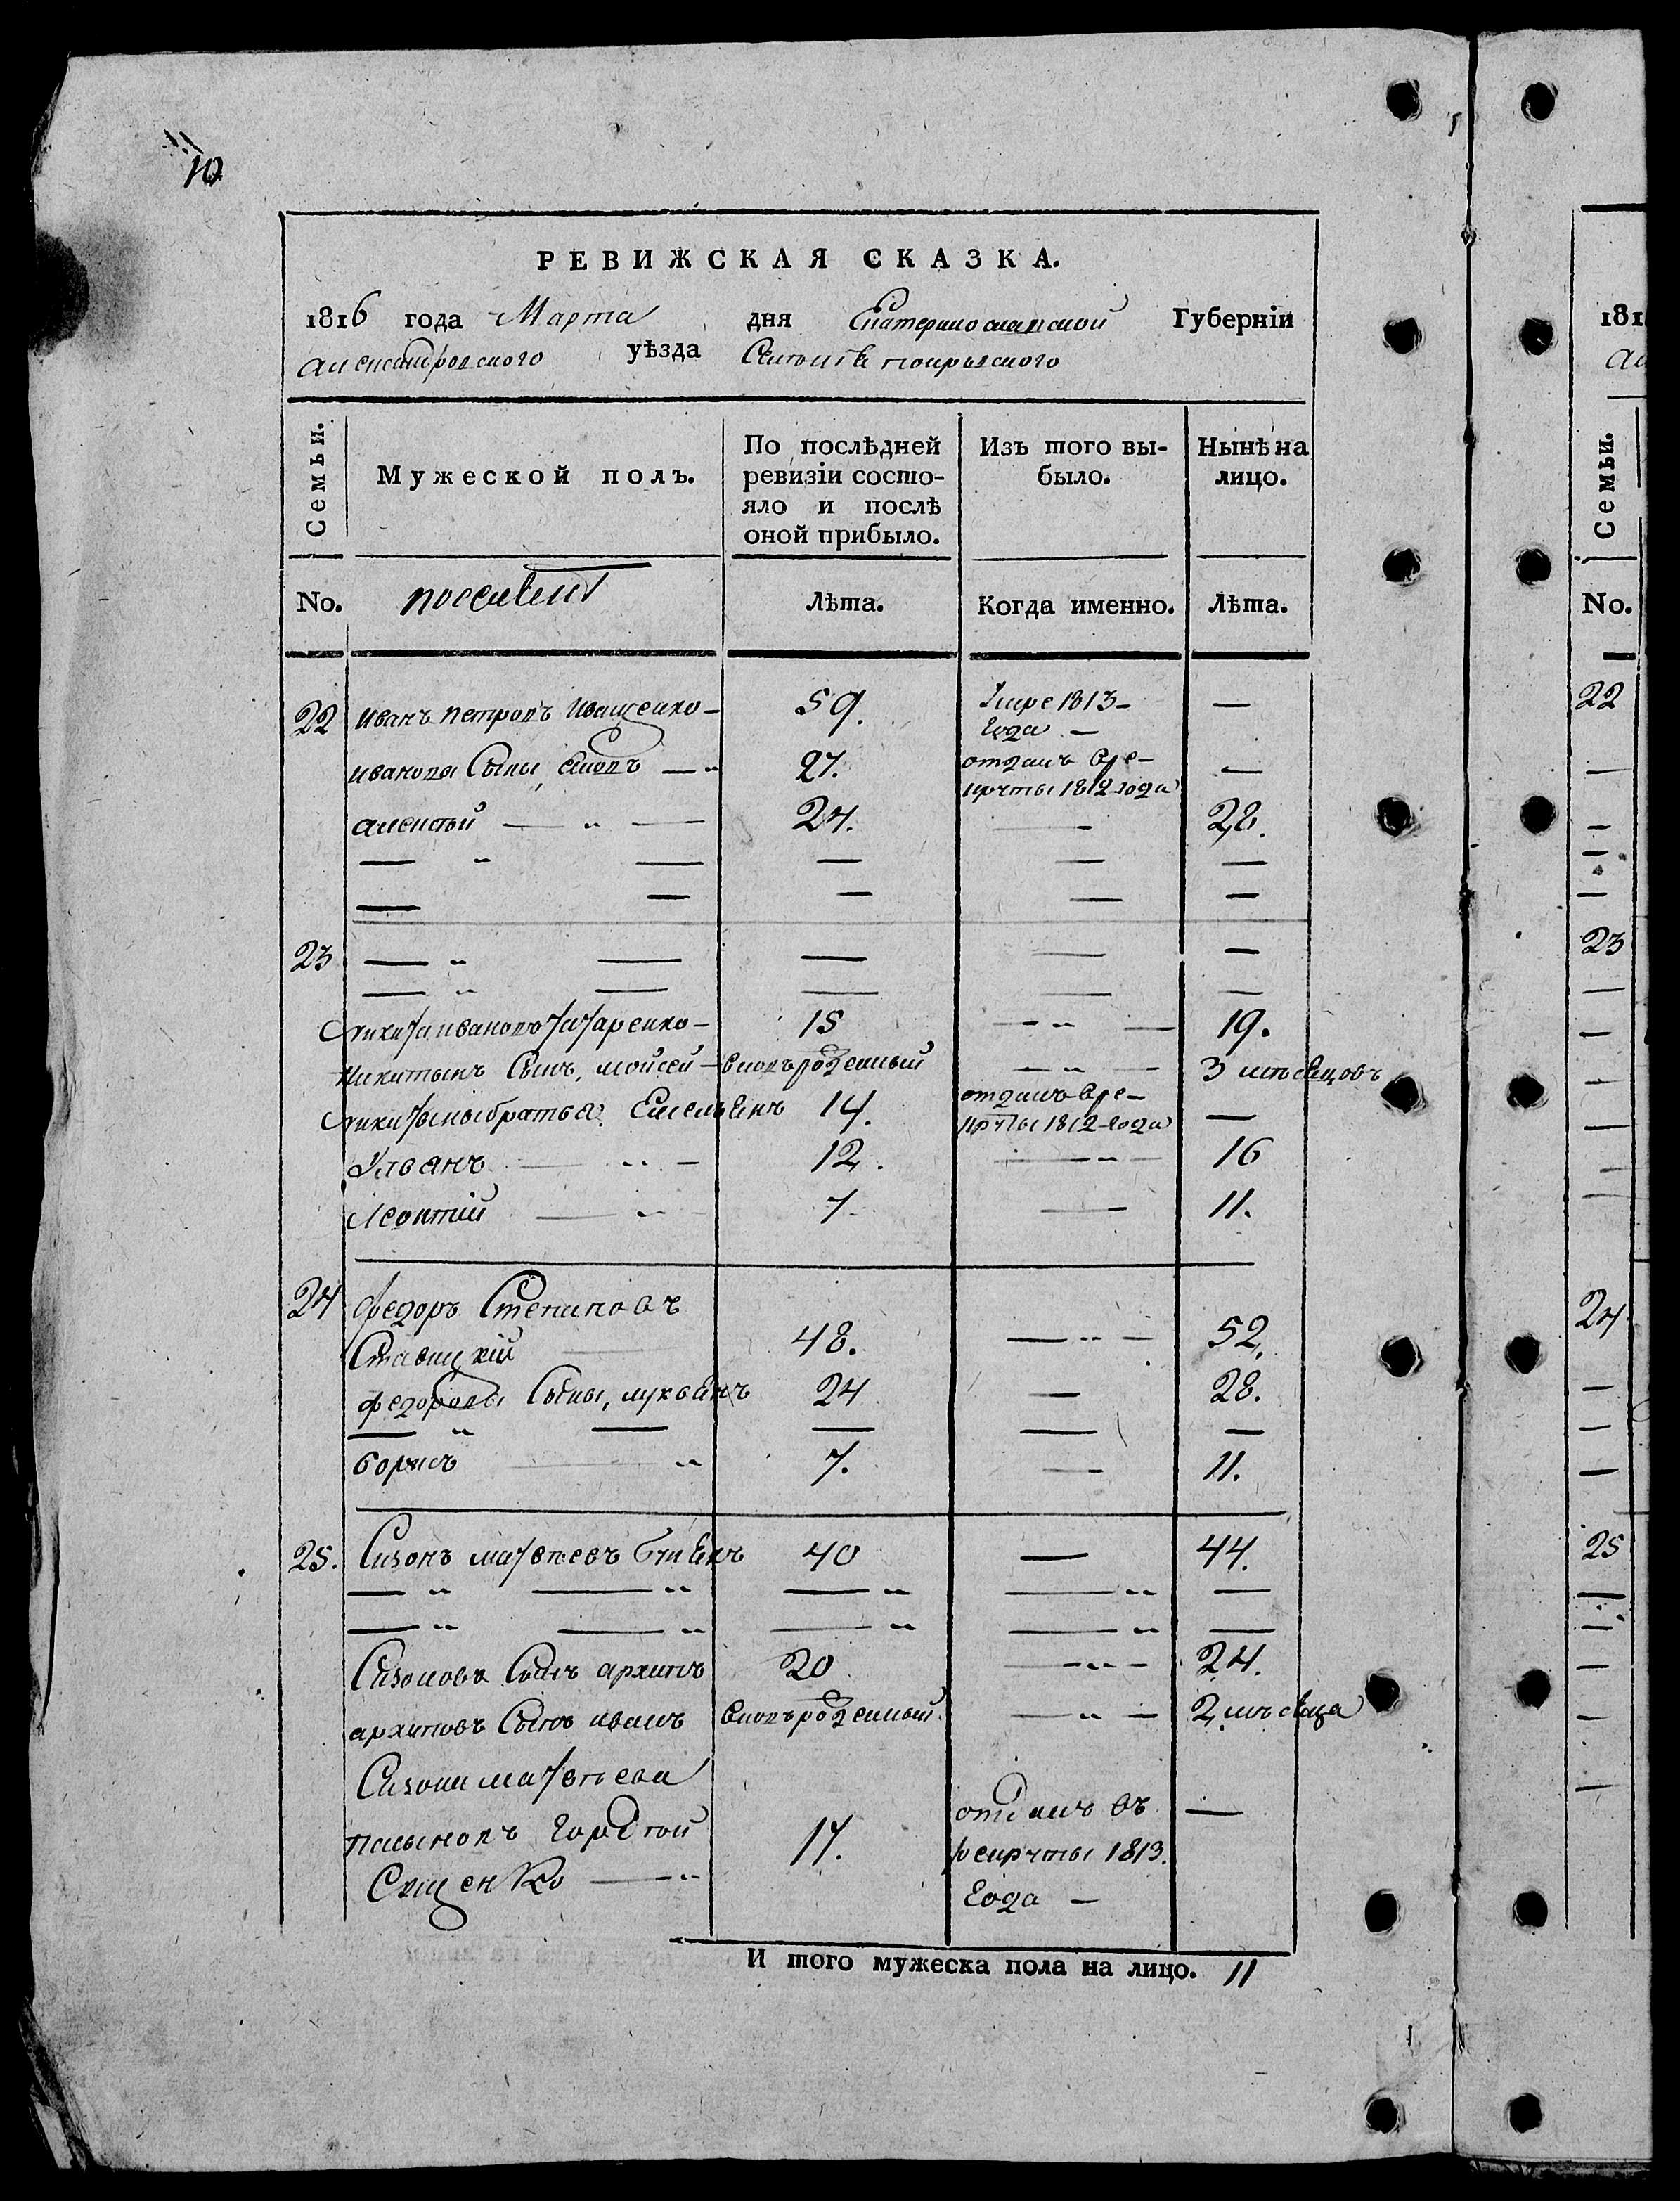 10
РЕВИЖСКАЯ СКАЗКА.
1816 года Марта дня Екатеринославской Губерніи
александровского уѣзда Селенія покровского
Семьи. Мужеской полъ. По послѣдней ревизіи состояло и послѣ оной прибыло. Изъ того выбыло. Нынѣ на лицо.
No. поселенъ Лѣта. Когда именно. Лѣта.
22 иванъ петровъ иващенко — 59. умре 1813-
года —
ивановы Сыны, — „ 27. отданъ вре-
круты 1812 года —
алексѣй — „ — 24. — 28.
— „ — — — —
— — — — —
23 — „ — — — —
— „ — — — —
никита ивановъ татаренко — 15 — „ — 19.
никитинъ Сынъ, мойсей — вновьрожденный — „ — 3 мѣсяцовъ
никитыны братья Емельянъ 14. отданъ вре-
круты 1812 года —
Ульянъ — „ — 12. — „ — 16
Леонтий — „ — 7 — 11.
24 федоръ Степановъ
Ставицкій — 48. — „ — 52.
федоровы Сыны, лукьянъ 24 — 28.
— „ — — — —
борисъ — „ 7. — 11.
25. Сизонъ матвѣевъ 40 — 44.
— „ — „ — „ — „ —
— „ — „ — „ — „ —
Сизоновъ Сынъ архипъ 20 — „ — 24.
архиповъ Сынъ иванъ вновьрожденный — „ — 2 мѣсяца
Сизона матвѣева
пасынокъ гордѣй 17. отданъ въ —
рекруты 1813.
— „ года —
И того мужеска пола на лицо. 11
181
Семьи.
No.
22
23
24
25